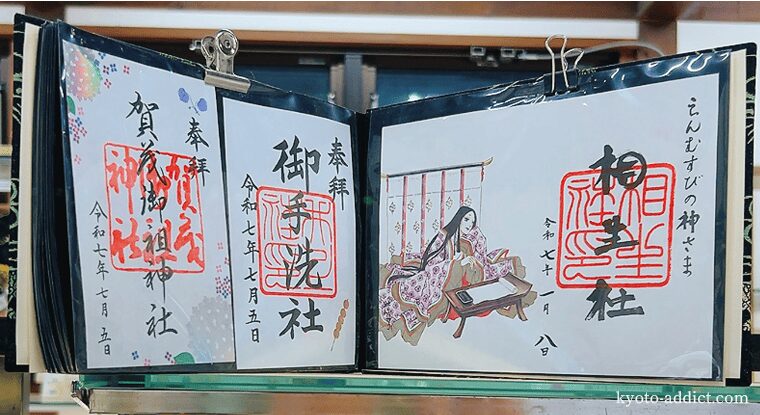 えんむすびの神さま
相生社
相生社印
令和七年 一月 八日
奉拝
御手洗社
令和七年七月五日
奉拝
賀茂御祖神社
令和七年七月五日
kyoto-addict.com